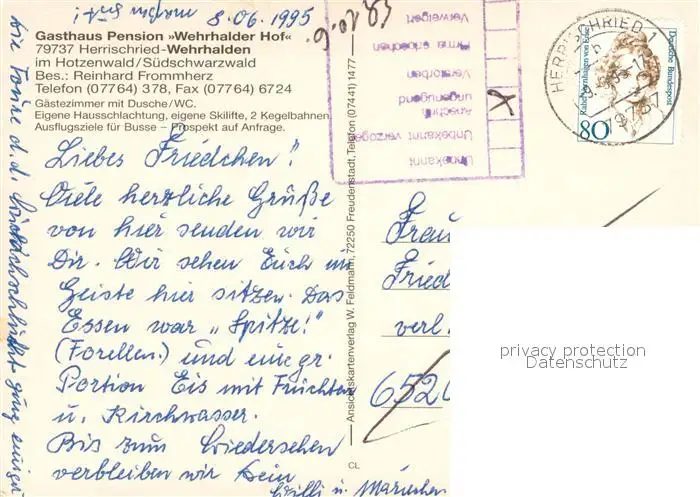 8.06.1995
Gasthaus Pension »Wehrhalder Hof«
79737 Herrischried-Wehrhalden
im Hotzenwald/Südschwarzwald
Bes.: Reinhard Frommherz
Telefon (07764) 378, Fax (07764) 6724
Gästezimmer mit Dusche/WC.
Eigene Hausschlachtung, eigene Skilifte, 2 Kegelbahnen.
Ausflugsziele für Busse – Prospekt auf Anfrage.
Liebes Friedchen!
Viele herzliche Grüße
von hier senden wir
Dir. Wir sehen Euch im
Geiste hier sitzen. Das
Essen war „Spitze!"
(Forellen.) und eine gr.
Portion Eis mit Früchten
u. Kirchwasser.
Bis zum Wiedersehen
verbleiben wir Dein
Willi u. Mariechen
Die Tour d. d.
ging
Ansichtskartenverlag W. Feldmann, 72250 Freudenstadt, Telefon (07441) 1477
CL
Verweigert
Firma erloschen
Verstorben
Anschrift
ungenügend
Unbekannt verzogen
Unbekannt
X
HERRISCHRIED 1
Deutsche Bundespost
80
Frau
Fried
verl.
6520
privacy protection
Datenschutz